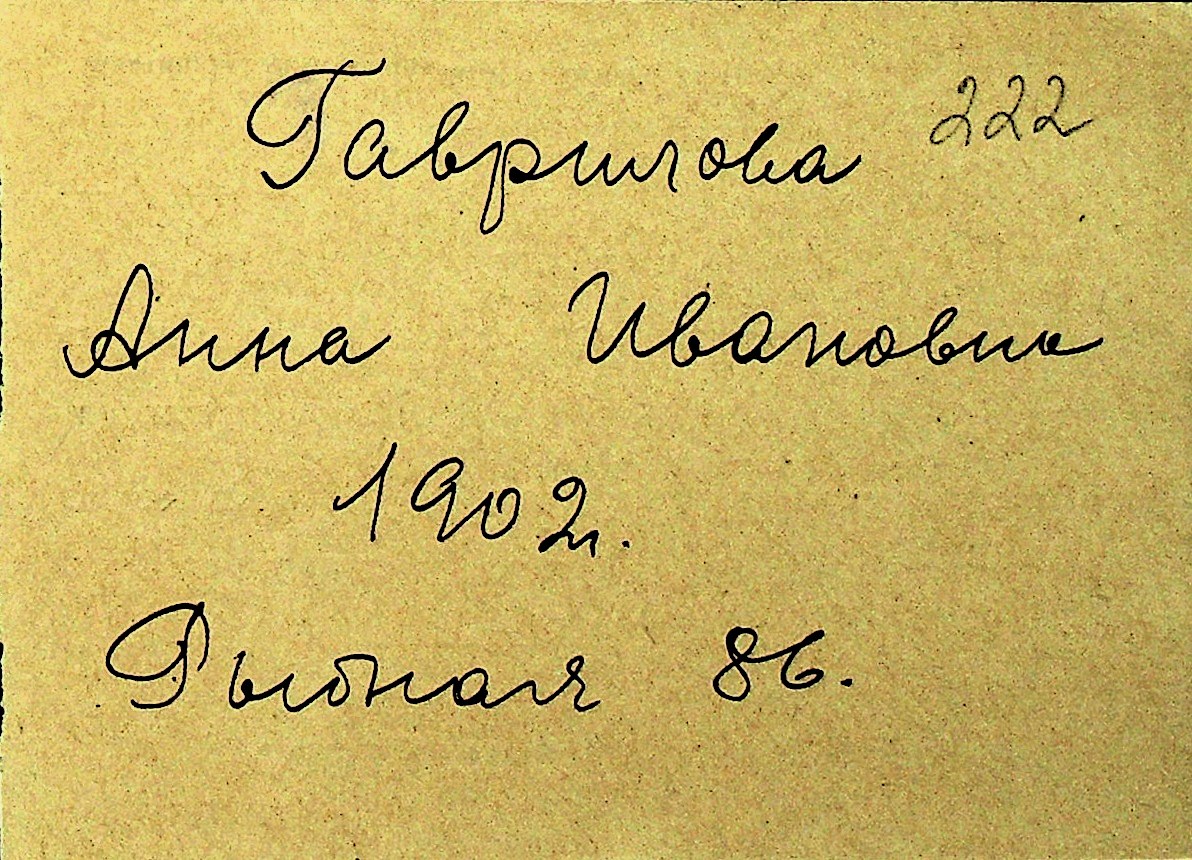 Гаврилова 222
Анна Ивановна
1902г.
Рыбная 86.